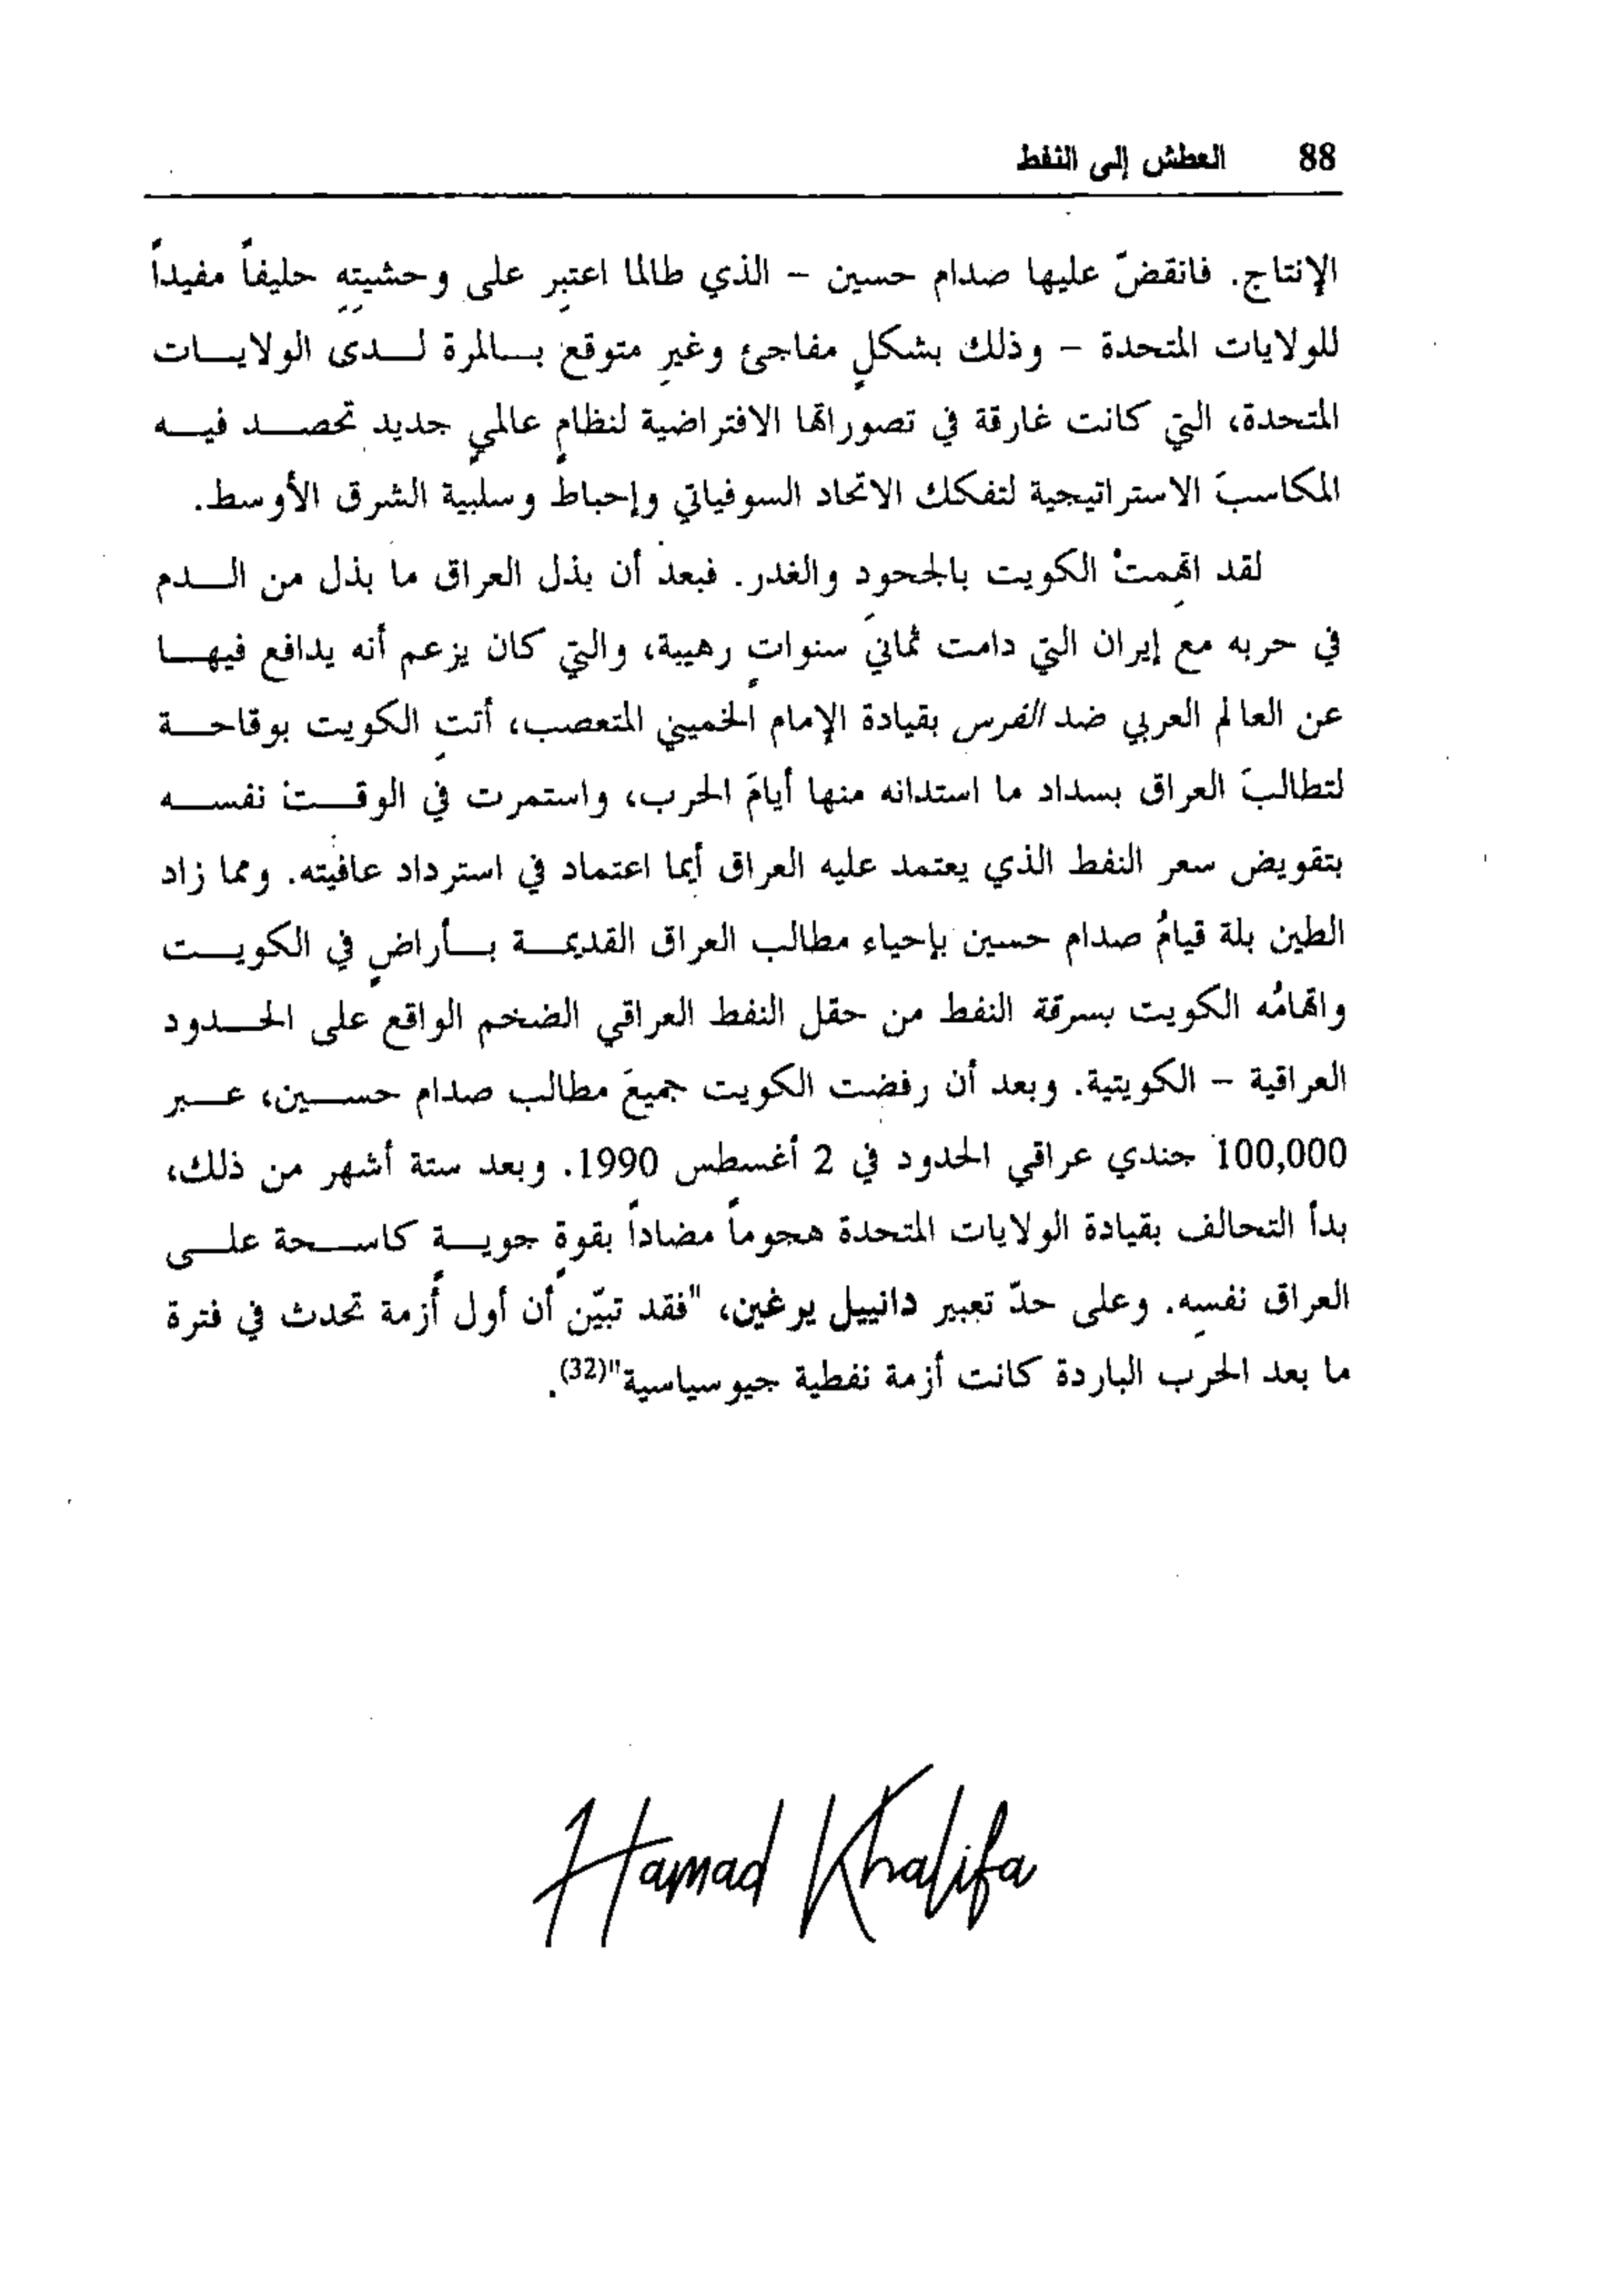 88 العطش إلى النفط
الإنتاج. فانقضّ عليها صدام حسين – الذي طالما اعتبر على وحشيتهِ حليفاً مفيداً
للولايات المتحدة – وذلك بشكلٍ مفاجئ وغيرِ متوقع بـالمرة لـدى الولايـات
المتحدة، التي كانت غارقة في تصوراتها الافتراضية لنظامٍ عالميٍ جديد تحصـد فيـه
المكاسبَ الاستراتيجية لتفكك الاتحاد السوفياتي وإحباط وسلبية الشرق الأوسط.
لقد اتهِمتْ الكويت بالجحود والغدر. فبعد أن بذل العراق ما بذل من الـدم
في حربه مع إيران التي دامت ثمانيَ سنواتٍ رهيبة، والتي كان يزعم أنه يدافع فيهـا
عن العالم العربي ضد الفرس بقيادة الإمام الخميني المتعصب، أتتِ الكويت بوقاحـة
لتطالبَ العراق بسداد ما استدانه منها أيامَ الحرب، واستمرت في الوقـت نفسـه
بتقويض سعر النفط الذي يعتمد عليه العراق أيما اعتماد في استرداد عافيته. ومما زاد
الطين بلة قيامُ صدام حسين بإحياء مطالب العراق القديمـة بـأراضٍ في الكويـت
واتهامُه الكويت بسرقة النفط من حقل النفط العراقي الضخم الواقع على الحـدود
العراقية – الكويتية. وبعد أن رفضت الكويت جميعَ مطالب صدام حسـين، عـبر
100,000 جندي عراقي الحدود في 2 أغسطس 1990. وبعد ستة أشهر من ذلك،
بدأ التحالف بقيادة الولايات المتحدة هجوماً مضاداً بقوةٍ جويـةٍ كاسـحة علـى
العراق نفسِه. وعلى حدّ تعبير دانييل يرغين، "فقد تبيّن أن أول أزمة تحدث في فترة
ما بعد الحرب الباردة كانت أزمة نفطية جيوسياسية"(32).
Hamad Khalifa